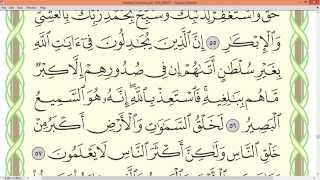 حَقٌّ وَٱسْتَغْفِرْ لِذَنۢبِكَ وَسَبِّحْ بِحَمْدِ رَبِّكَ بِٱلْعَشِىِّ
وَٱلْإِبْكَٰرِ ٥٥ إِنَّ ٱلَّذِينَ يُجَٰدِلُونَ فِىٓ ءَايَٰتِ ٱللَّهِ
بِغَيْرِ سُلْطَٰنٍ أَتَىٰهُمْ إِن فِى صُدُورِهِمْ إِلَّا كِبْرٌ
مَّا هُم بِبَٰلِغِيهِ فَٱسْتَعِذْ بِٱللَّهِ إِنَّهُۥ هُوَ ٱلسَّمِيعُ
ٱلْبَصِيرُ ٥٦ لَخَلْقُ ٱلسَّمَٰوَٰتِ وَٱلْأَرْضِ أَكْبَرُ مِنْ
خَلْقِ ٱلنَّاسِ وَلَٰكِنَّ أَكْثَرَ ٱلنَّاسِ لَا يَعْلَمُونَ ٥٧